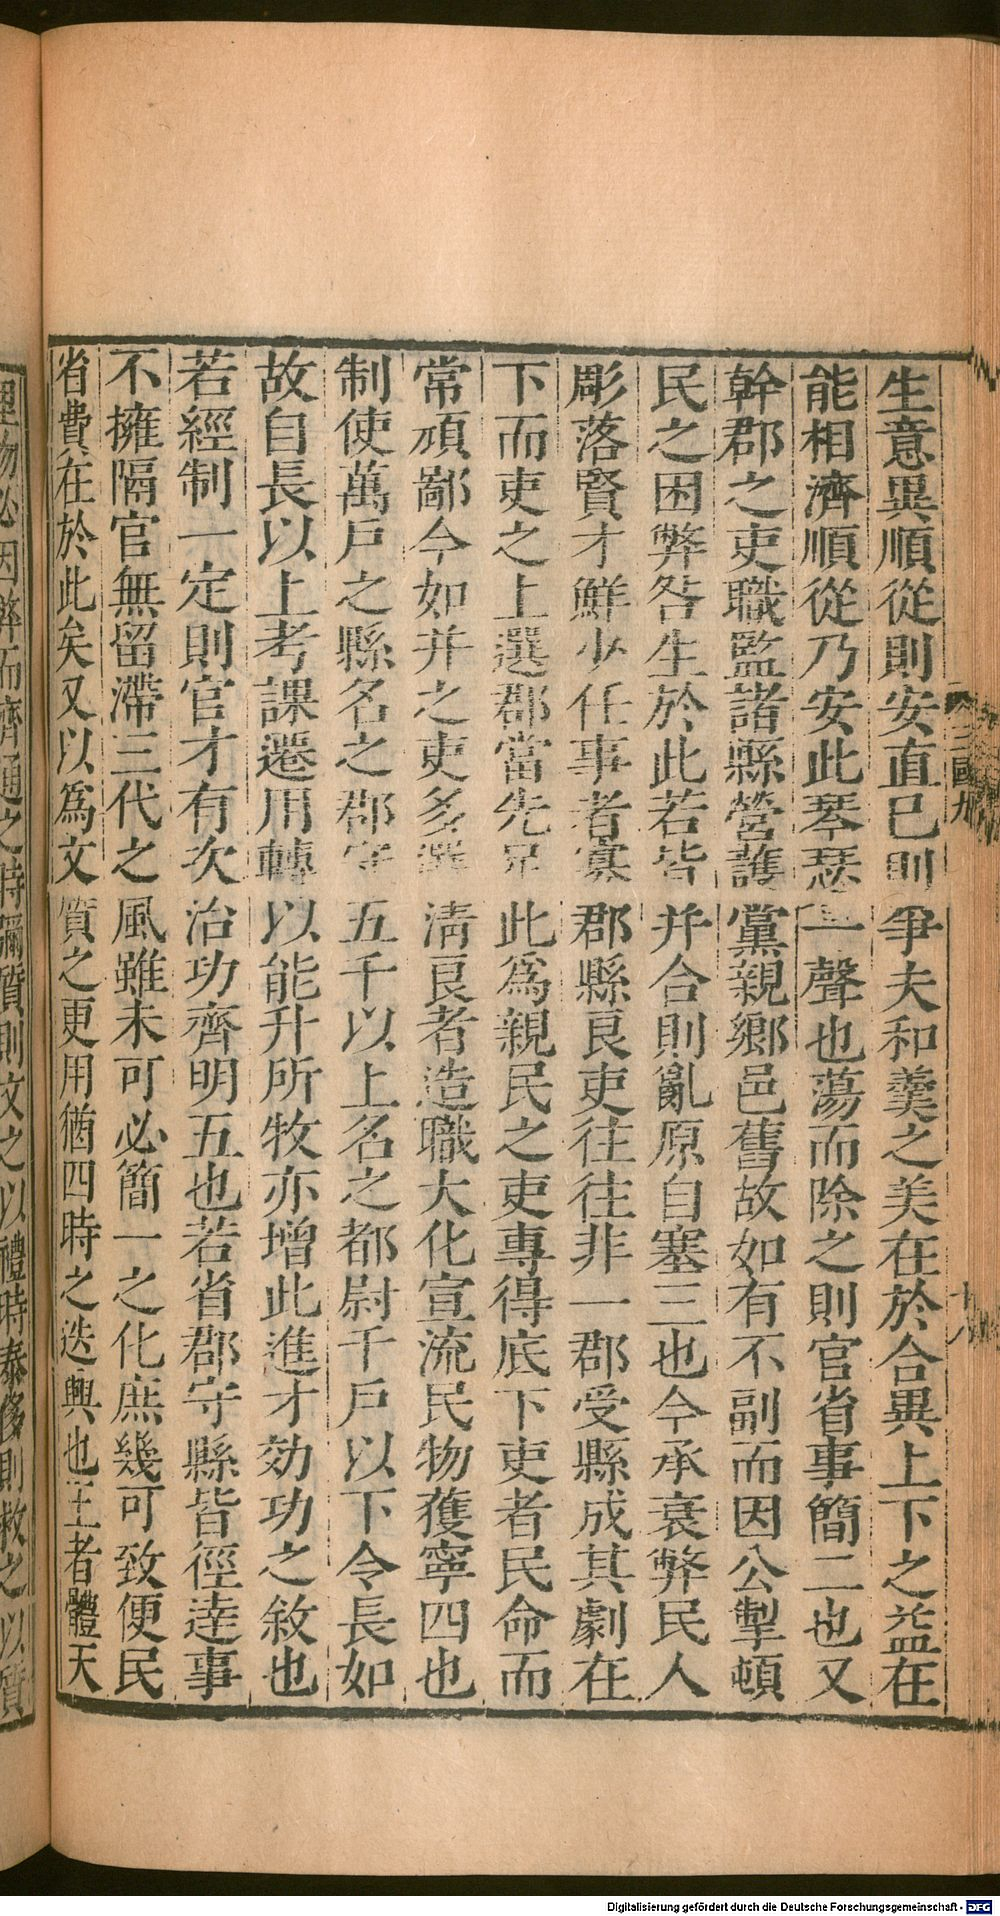 生意異順從則安直已則爭夫和羹之美在於合異上下之益在
能相濟順從乃安此琴瑟一聲也蕩而除之則官省事簡二也又
幹郡之吏職監諸縣營護黨親鄉邑舊故如有不副而因公掣頓
民之困弊咎生於此若皆并合則亂原自塞三也今承衰弊民人
彫落賢才鮮少任事者寡郡縣良吏往往非一郡受縣成其劇在
下而吏之上選郡當先足此為親民之吏專得底下吏者民命而
常頑鄙今如并之吏多選清良者造職大化宣流民物獲寧四也
制使萬戶之縣名之郡守五千以上名之都尉千戶以下令長如
故自長以上考課遷用轉以能升所牧亦增此進才効功之敘也
若經制一定則官才有次治功齊明五也若省郡守縣皆徑達事
不擁隔官無留滯三代之風雖未可必簡一之化庶幾可致便民
省費在於此矣又以為文質之更用猶四時之迭興也王者體天
理物必因弊而濟通之時彌質則文之以禮時泰侈則救之以質
三國九
十八
Digitalisierung gefördert durch die Deutsche Forschungsgemeinschaft - DFG